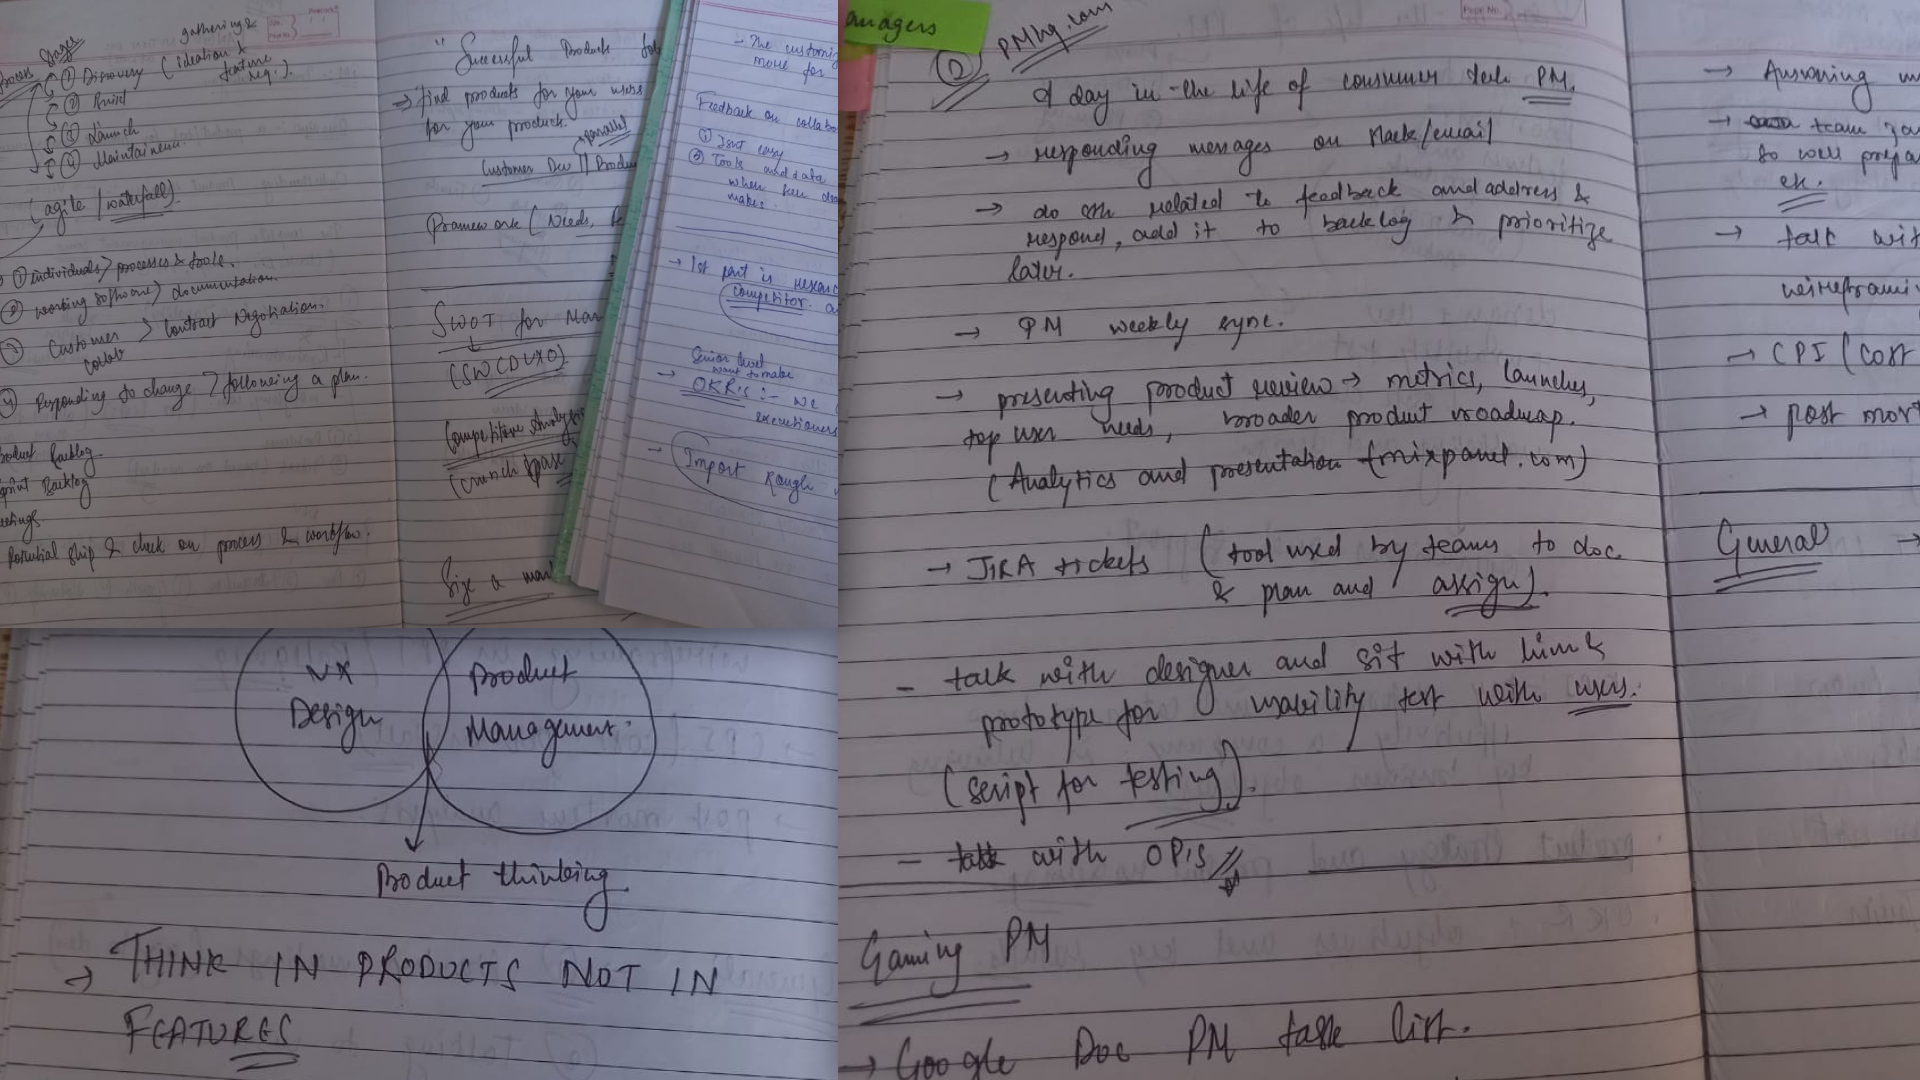 Stages
gathering &
Process
① Discovery (ideation &
feature
req.).
② Build
③ Launch
④ Maintainence
(agile / waterfall)
① individuals > processes & tools.
② working software > documentation.
③ Customer > Contract Negotiation.
collab
④ Responding to change > following a plan.
Product Backlog
Sprint Backlog
Potential ship & check on process & workflow.
"Successful Products
→ find products for your users
for your product.
(parallel)
Customer Dev ||
Framework (Needs,
SWOT for
(SWCDUXO)
Competitive Analysis
(crunch
Size a
- The
more for
Feedback on
① Isn't easy
② Tools and data
when
makes.
→ 1st part is
competitor.
Senior level
want to make
→ OKR's :- we
- Import Rough
UX
Design
Product
Management
Product thinking.
→ THINK IN PRODUCTS NOT IN
FEATURES
anagers
② PMhq.com
A day in the life of consumer tech PM.
→ responding messages on slack/email
→ do related to feedback and address &
respond, add it to backlog & prioritize
later.
→ PM weekly sync.
→ presenting product review → metrics, launches,
top user needs, broader product roadmap.
(Analytics and presentation (mixpanel.com)
→ JIRA tickets (tool used by teams to doc.
& plan and assign).
- talk with designer and sit with him &
prototype for usability test with users.
(script for testing).
- talk with OPIS
Gaming PM
→ Google Doc PM task list.
→
→ team
so well
ex.
→ talk
→ CPI (cost
→ post
General →